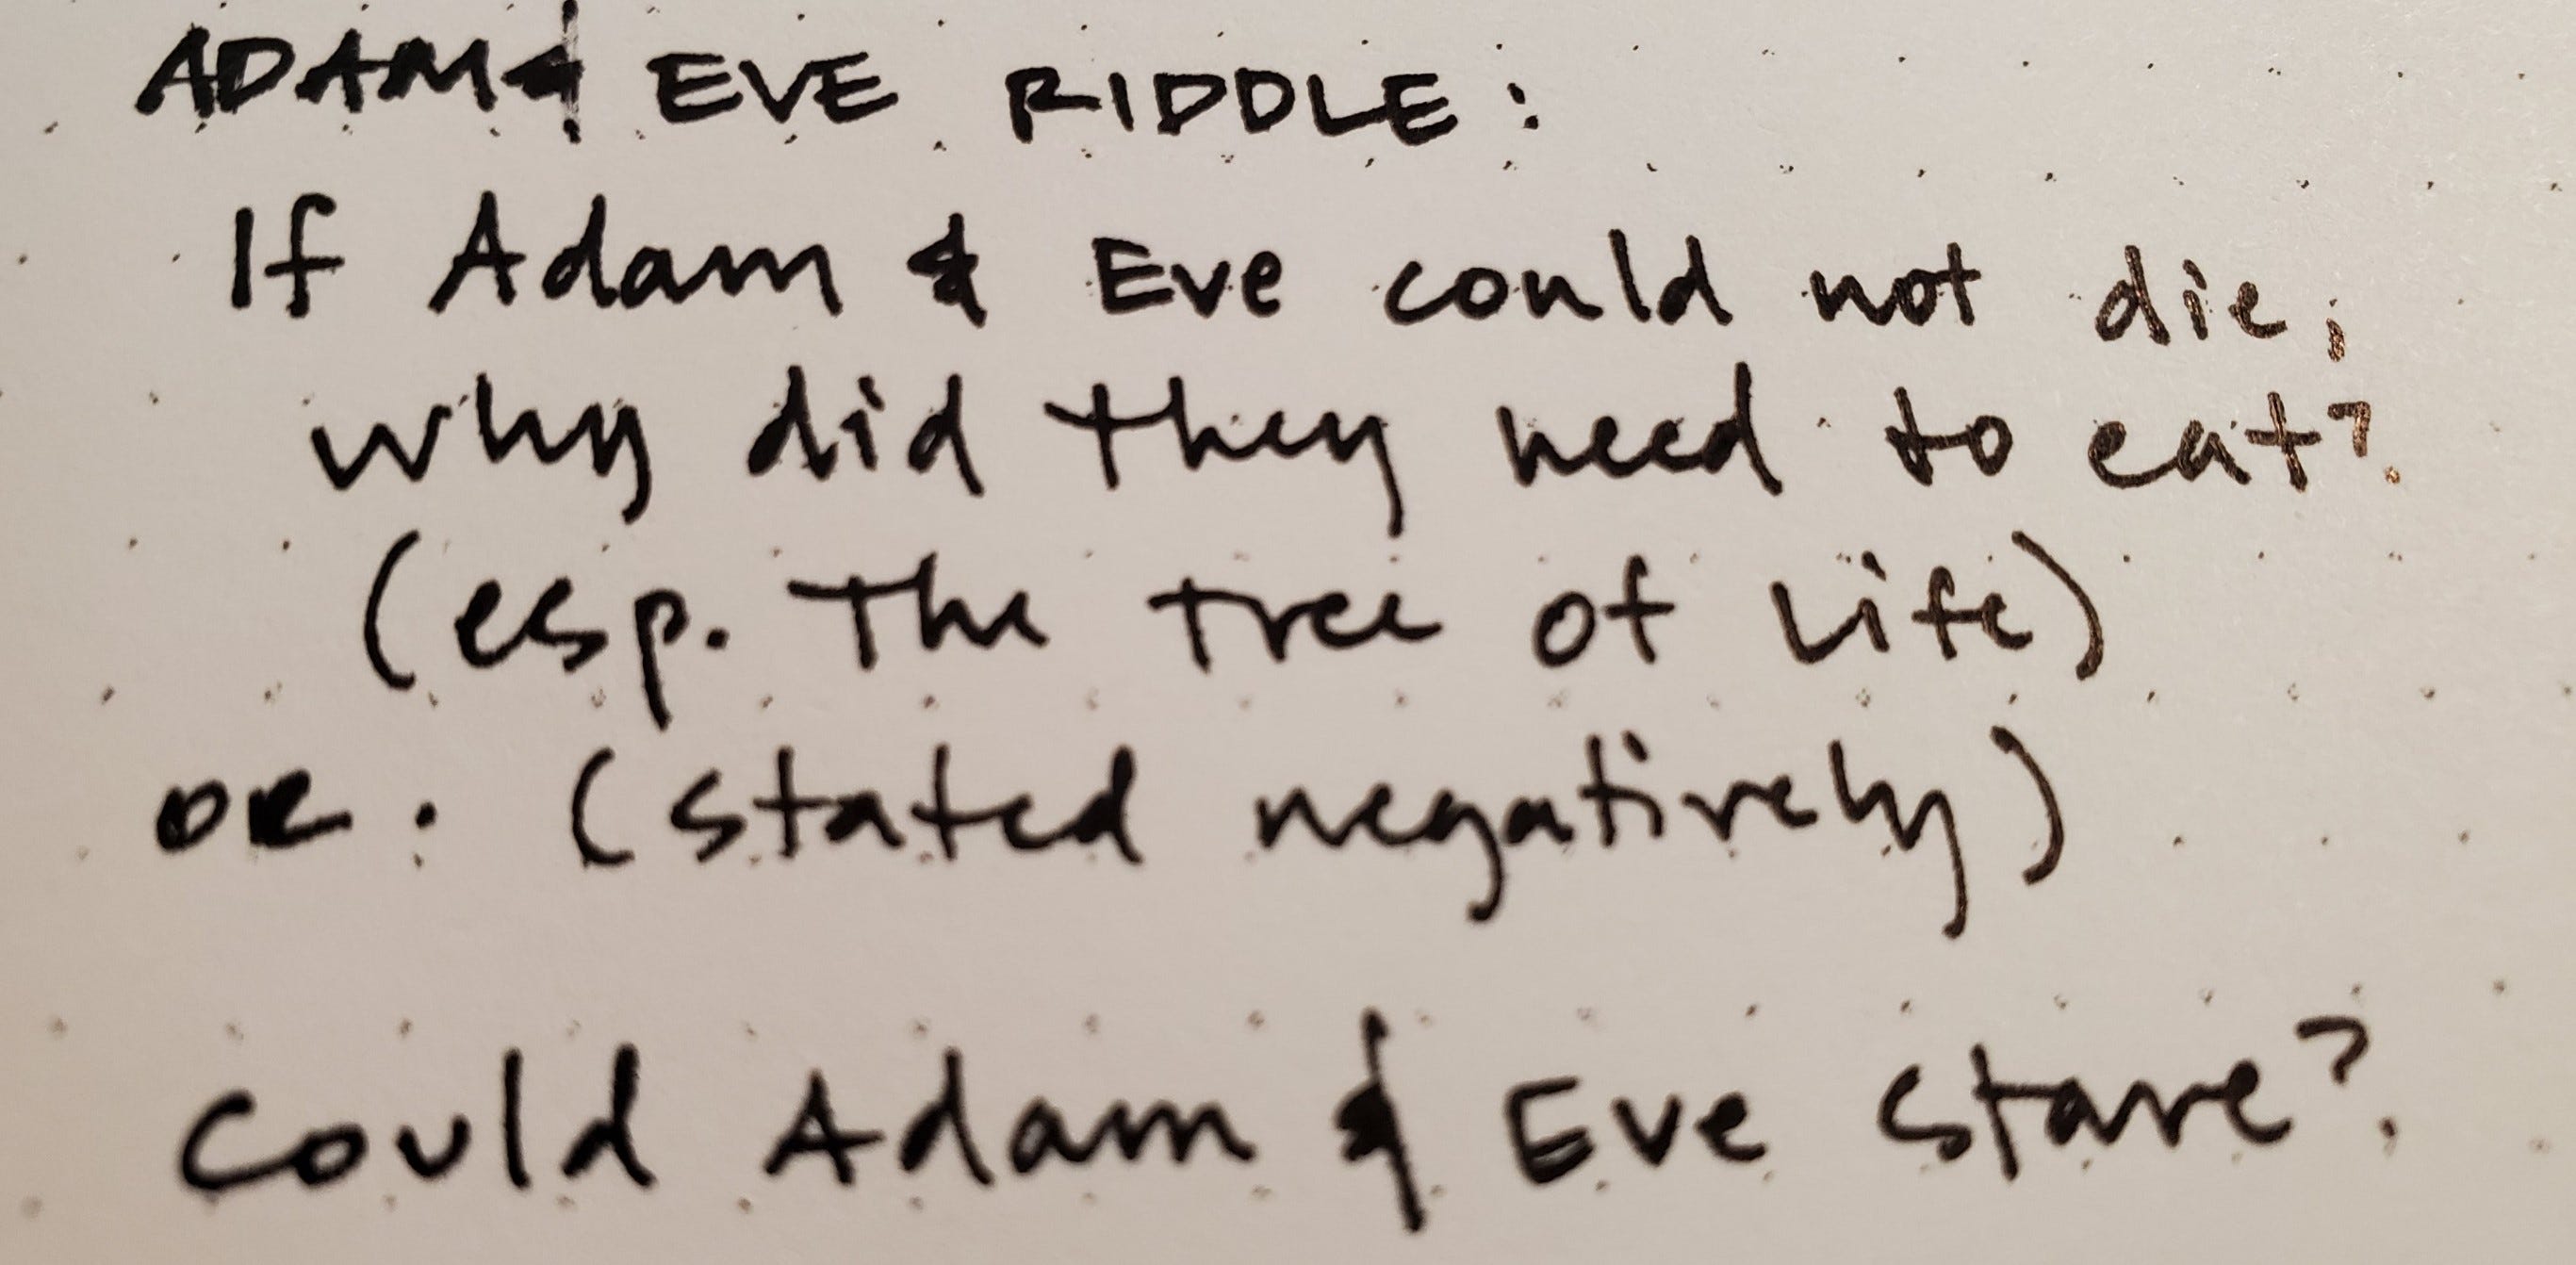 ADAM & EVE RIDDLE:
If Adam & Eve could not die,
why did they need to eat?
(esp. the tree of life)
OR: (stated negatively)
Could Adam & Eve starve?